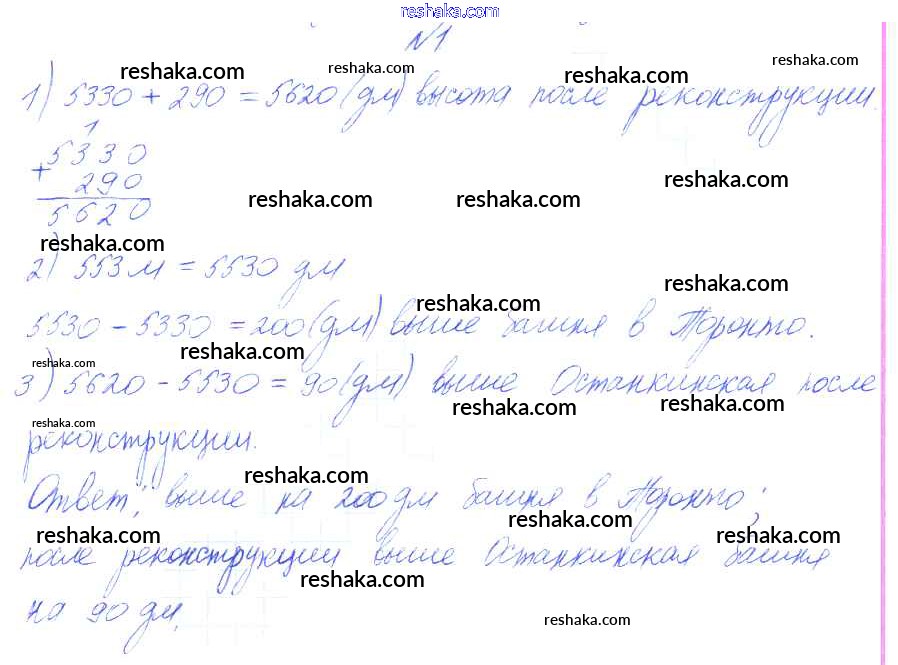 reshaka.com
№1
reshaka.com reshaka.com reshaka.com reshaka.com
1) 5330 + 290 = 5620 (дм) высота после реконструкции.
1
5330
+ 290
reshaka.com reshaka.com reshaka.com
5620
reshaka.com
2) 553 м = 5530 дм
reshaka.com reshaka.com
5530 - 5330 = 200 (дм) выше башня в Торонто.
reshaka.com reshaka.com
3) 5620 - 5530 = 90 (дм) выше Останкинская после
reshaka.com reshaka.com
реконструкции.
reshaka.com
Ответ: выше на 200 дм башня в Торонто;
reshaka.com reshaka.com reshaka.com
после реконструкции выше Останкинская башня
reshaka.com
на 90 дм.
reshaka.com